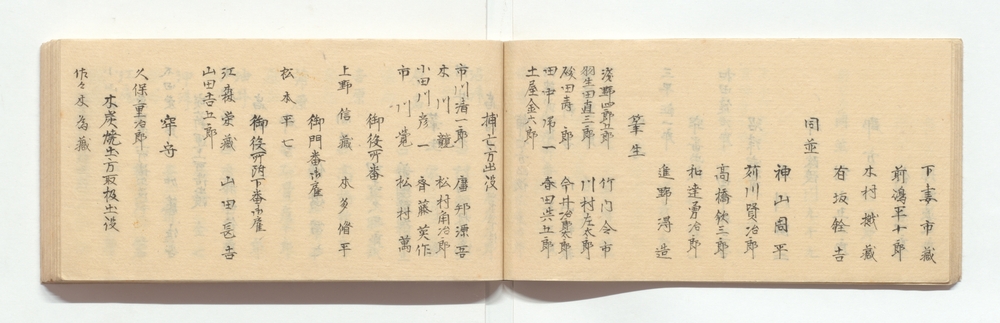 下妻市藏
前嶋平十郎
木村撤藏
有坂銓吉
同並
神山周平
前川賢治郎
高橋欽三郎
和達勇治郎
進野淂造
筆生
淺野四郎五郎 竹内令市
羽生田直三郎 川村左太郎
砂田壽一郎 今井治郎太郎
田中凊一 春田兵五郎
土屋金六郎
捕亡方出役
市川清一郎 唐知源吾
木川鐘 松村角治郎
小田川彦一 斉藤英作
市川寛 松村萬
御役所番
上野信藏 本多脩平
御門番御雇
松本平七
御役所附下番御雇
江森榮藏 山田長吉
山田吉五郎
牢守
久保重治郎
木炭焼出方取扱出役
佐々木為藏